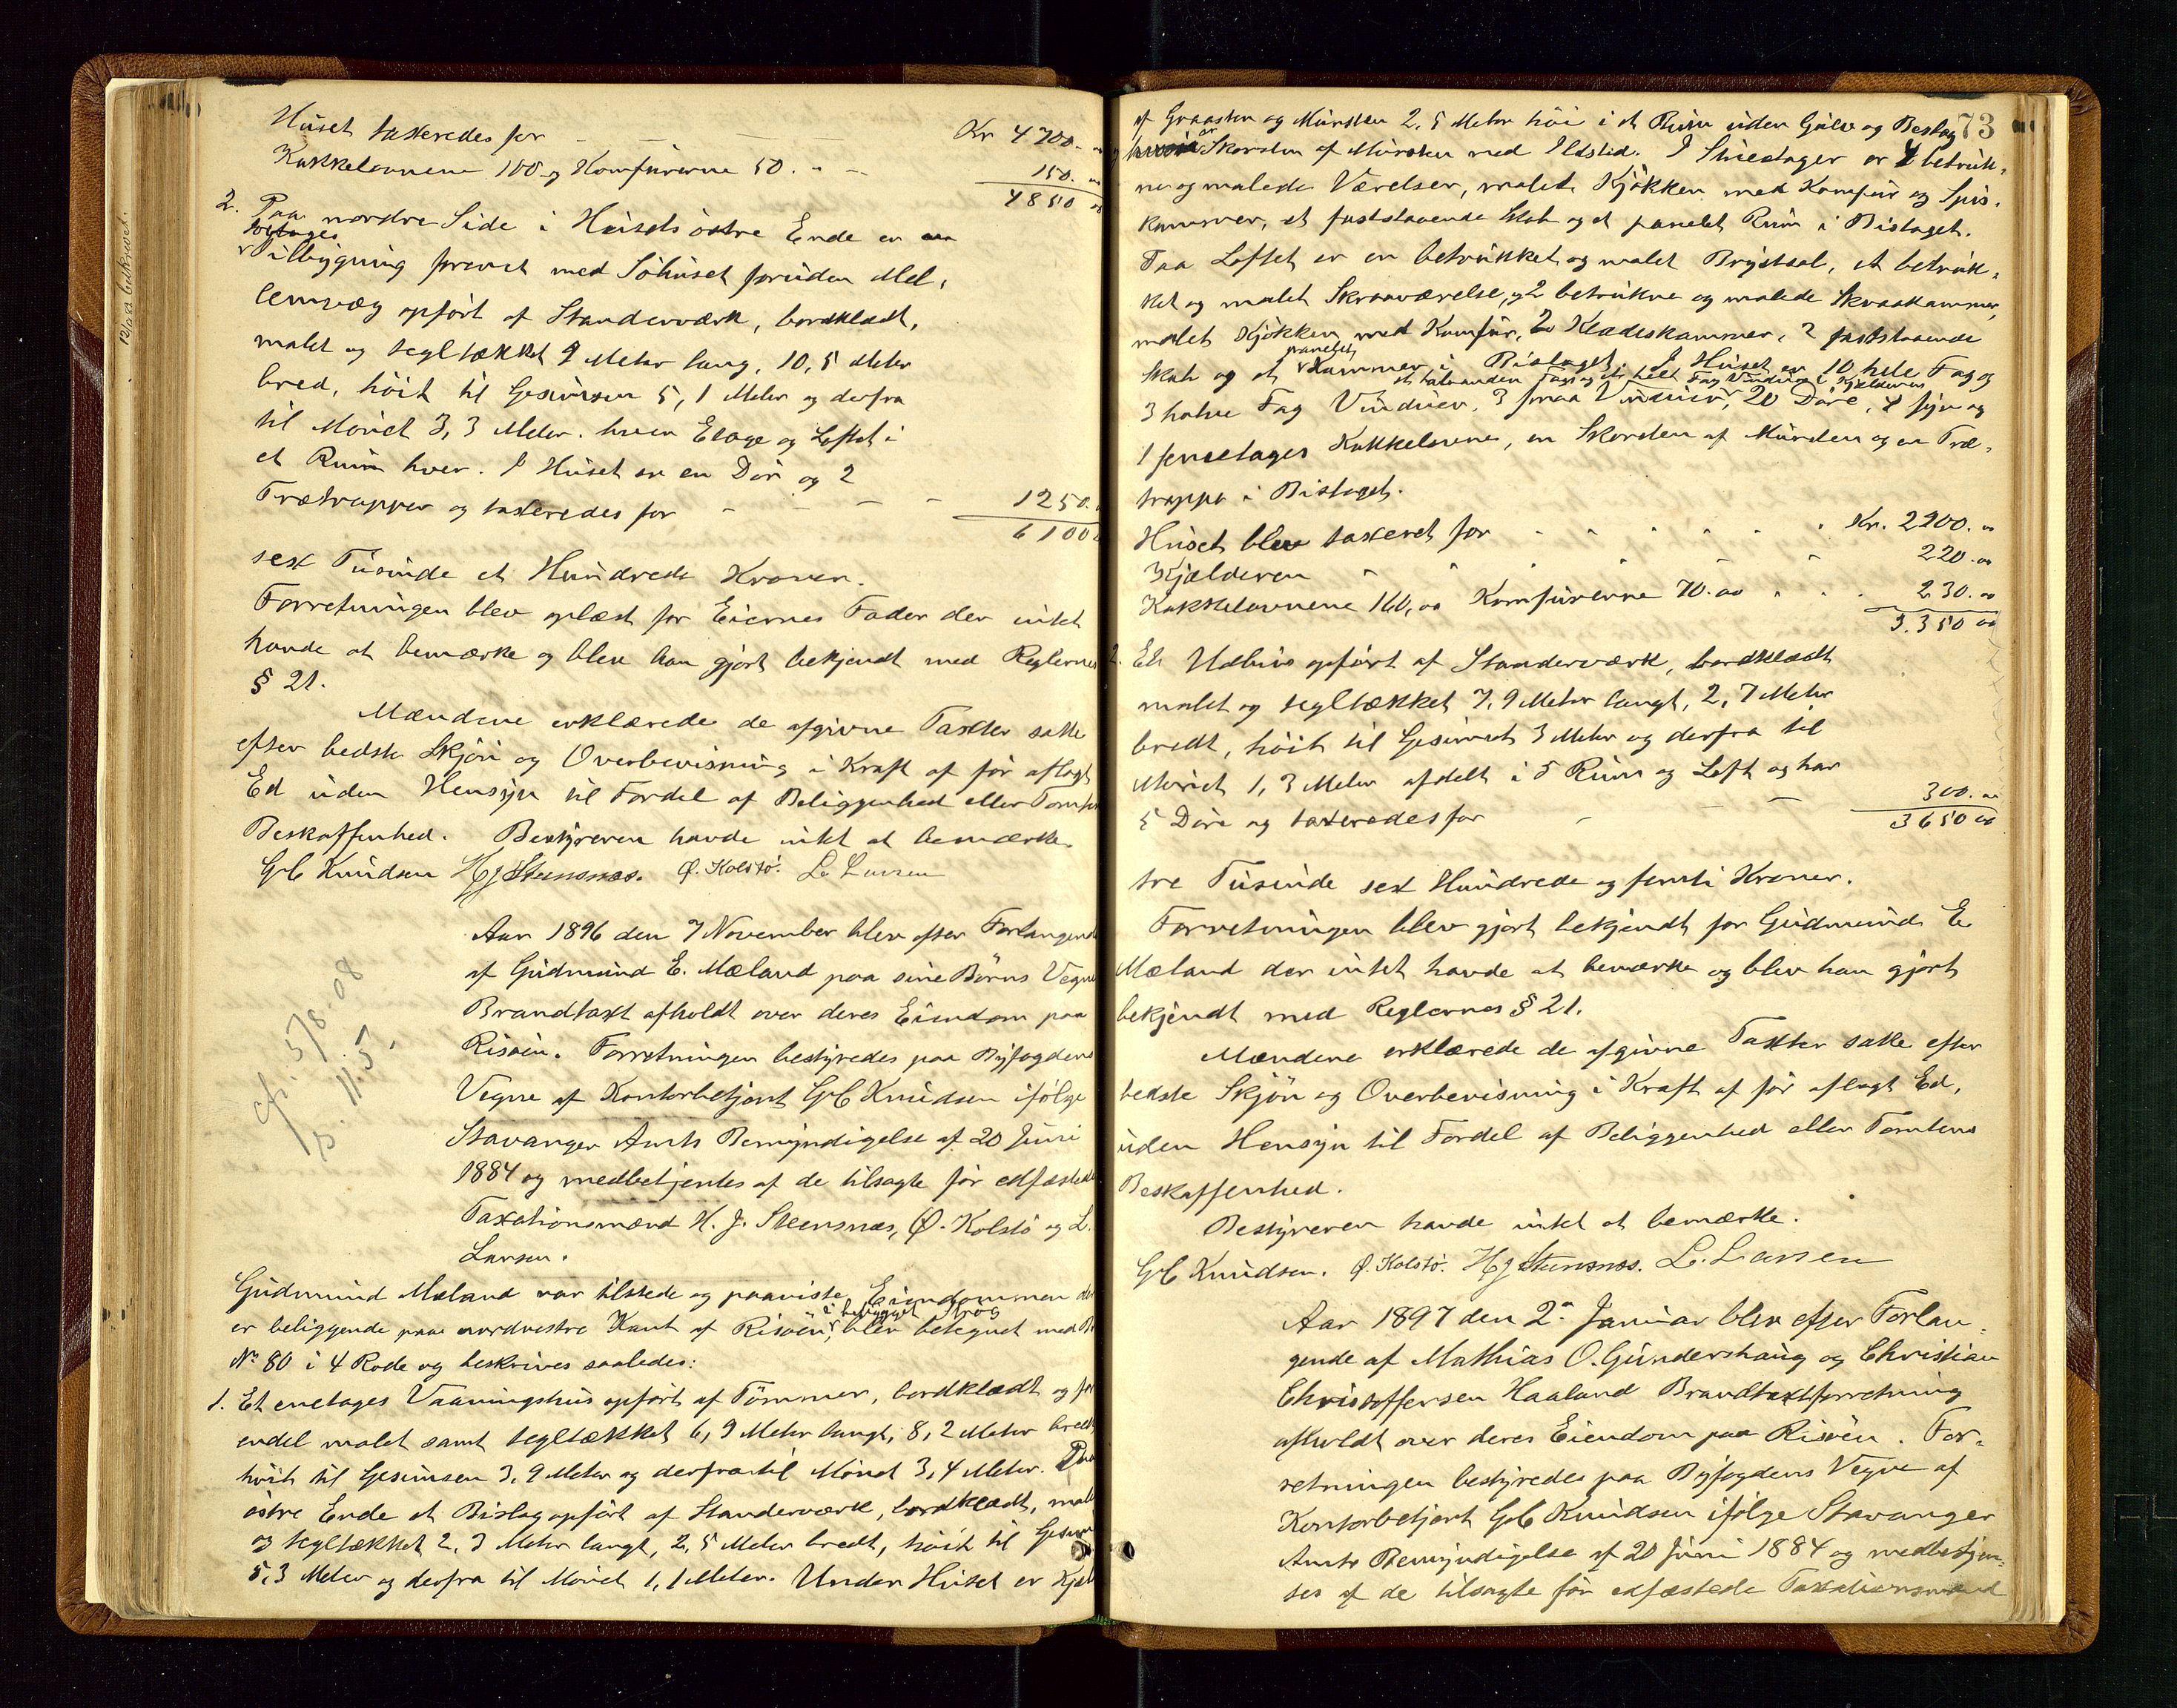 Huset taxeredes for - - - Kr 4700. 00
Kakkelovnene 100 og Komfurerne 50. - - 150. 00
4850 00
2. Paa nordre Side i Husets östre Ende er en
toetages
Tilbygning forenet med Söhuset foruden Mel,
lemvæg opfört af Standerværk, bordklædt,
malet og tegltækket 9 Meter lang, 10,5 Meter
bred, höit til Gesimsen 5,1 Meter og derfra
til Mönet 3,3 Meter. hver Etage og Loftet i
et Rum hver. I Huset er en Dör og 2
Trætrapper og taxeredes for - - - - 1250.
6100
sex Tusinde et Hundrede Kroner.
Forretningen blev oplæst for Eiernes Fader der intet
havde at bemærke og blev han gjort bekjendt med Reglernes
§ 21.
Mændene erklærede de afgivne Taxter satte
efter bedste Skjön og Overbevisning i Kraft af för aflagt
Ed uden Hensyn til Fordel af Beliggenhed eller Tomtens
Beskaffenhed. Bestyreren havde intet at bemærke.
GC Knudsen HJ Steensnæs. Ø. Kolstö. L. Larsen
Aar 1896 den 7 November blev efter Forlangende
af Gudmund E. Mæland paa sine Börns Vegne
Brandtaxt afholdt over deres Eiendom paa
Risöen. Forretningen bestyredes paa Byfogdens
Vegne af Kontorbetjent GC Knudsen ifölge
Stavanger Amts Bemyndigelse af 20 Juni
1884 og medbetjentes af de tilsagte för edfæstede
Taxationsmænd H. J. Steensnæs, Ø. Kolstö og L.
Larsen.
cfr. 5/8. 08
p. 11. 5.
Gudmund Mæland var tilstede og paaviste Eiendommen der
i bebygget Strög
er beliggende paa nordvestre Kant af Risöen, blev betegnet med
No 80 i 4 Rode og beskrives saaledes:
1. Et enetages Vaaningshus opfört af Tömmer, bordklædt og for
endel malet samt tegltækket 6,9 Meter langt, 8,2 Meter bredt
höit til Gesimsen 3,9 Meter og derfra til Mönet 3,4 Meter. Paa
östre Ende et Bislag opfört af Standerværk, bordklædt, malet
og tegltækket 2,3 Meter langt, 2,5 Meter bredt, höit til Gesims
5,3 Meter og derfra til Mönet 1,1 Meter. Under Huset er Kjel
73
af Graasten og Mursten 2,5 Meter höi i et Rum uden Gulv og Beslag
Skorsten af Mursten med Ildsted. I Stueetagen er 4 betruk,
ne og malede Værelser, malet Kjökken med Komfur og Spis,
kammer, et faststaaende Skab og et panelet Rum i Bislaget.
Paa Loftet er en betrukket og malet Brystsal, et betruk,
ket og malet Skraaværelse, 2 betrukne og malede Skraakammer,
malet Kjökken med Komfur, 2 Klædeskammer, 2 faststaaende
panelet
Skab og et Kammer i Bislaget. I Huset er 10 hele Fag og
3 halve Fag Vinduer, 3 smaa Vinduer, 20 Döre, 4 fyr og
1 femetages Kakkelovne, en Skorsten af Mursten og en Træ,
trappe i Bislaget.
Huset blev taxeret for - - - - Kr. 2900. 00
Kjælderen - - - - 220. 00
Kakkelovnene 160,00 Komfurerne 70.00 - - - 230. 00
3.350 00
2. Et Udhus opfört af Standerværk, bordklædt
malet og tegltækket 7,9 Meter langt, 2,7 Meter
bredt, höit til Gesimset 3 Meter og derfra til
Mönet 1,3 Meter afdelt i 5 Rum og Loft og har
5 Döre og taxeredes for - - - 300. 00
3650 00
tre Tusinde sex Hundrede og femti Kroner.
Forretningen blev gjort bekjendt for Gudmund E.
Mæland der intet havde at bemærke og blev han gjort
bekjendt med Reglernes § 21.
Mændene erklærede de afgivne Taxter satte efter
bedste Skjön og Overbevisning i Kraft af för aflagt Ed,
uden Hensyn til Fordel af Beliggenhed eller Tomtens
Beskaffenhed.
Bestyreren havde intet at bemærke.
GC Knudsen. Ø. Kolstö. HJ Steensnæs. L. Larsen
Aar 1897 den 2n Januar blev efter Forlan,
gende af Mathias O. Gundershaug og Christian
Christoffersen Haaland Brandtaxtforretning
afholdt over deres Eiendom paa Risöen. For,
retningen bestyredes paa Byfogdens Vegne af
Kontorbetjent GC Knudsen ifölge Stavanger
Amts Bemyndigelse af 20 Juni 1884 og medbetjen,
tes af de tilsagte för edfæstede Taxationsmænd